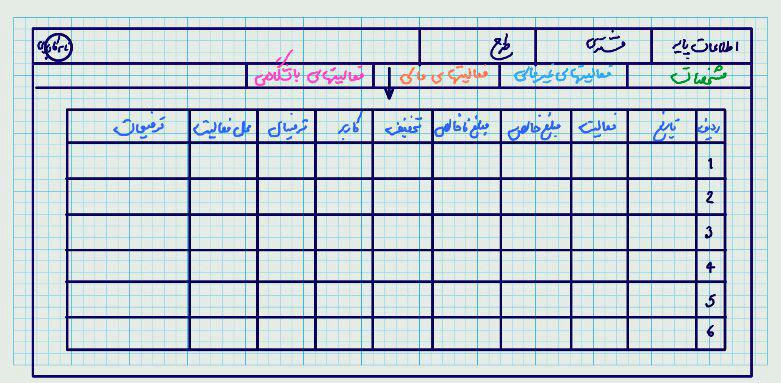 اطلاعات پایه مشتری طرح
مشخصات فعالیتهای غیرمالی فعالیتهای مالی فعالیتهای باشگاهی
ردیف تاریخ فعالیت مبلغ خالص مبلغ ناخالص تخفیف کاربر ترمینال محل فعالیت توضیحات
1
2
3
4
5
6